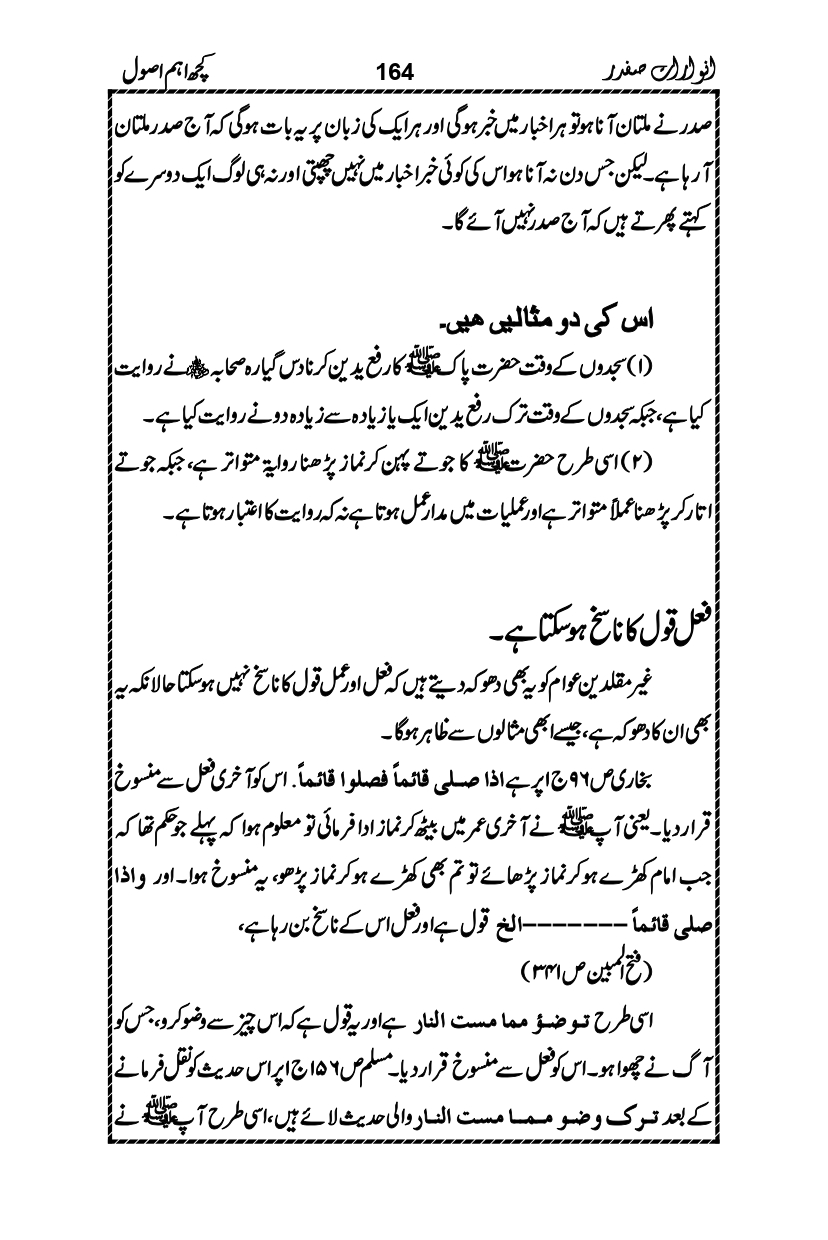 انوارات صفدر 164 کچھ اہم اصول
صدر نے ملتان آنا ہو تو ہر اخبار میں خبر ہوگی اور ہر ایک کی زبان پر یہ بات ہوگی کہ آج صدر ملتان
آرہا ہے۔ لیکن جس دن نہ آنا ہو اس کی کوئی خبر اخبار میں نہیں چھپتی اور نہ ہی لوگ ایک دوسرے کو
کہتے پھرتے ہیں کہ آج صدر نہیں آئے گا۔
اس کی دو مثالیں ھیں۔
(۱) سجدوں کے وقت حضرت پاک ﷺ کا رفع یدین کرنا دس گیارہ صحابہ ؓ نے روایت
کیا ہے، جبکہ سجدوں کے وقت ترک رفع یدین ایک یا زیادہ سے زیادہ دو نے روایت کیا ہے۔
(۲) اسی طرح حضرت ﷺ کا جوتے پہن کر نماز پڑھنا روایۃ متواتر ہے، جبکہ جوتے
اتار کر پڑھنا عملاً متواتر ہے اور عملیات میں مدار عمل ہوتا ہے نہ کہ روایت کا اعتبار ہوتا ہے۔
فعل قول کا ناسخ ہو سکتا ہے۔
غیر مقلدین عوام کو یہ بھی دھوکہ دیتے ہیں کہ فعل اور عمل قول کا ناسخ نہیں ہو سکتا حالانکہ یہ
بھی ان کا دھوکہ ہے، جیسے ابھی مثالوں سے ظاہر ہوگا۔
بخاری ص۹۶ ج۱ پر ہے اذا صلی قائماً فصلوا قائماً. اس کو آخری فعل سے منسوخ
قرار دیا۔ یعنی آپ ﷺ نے آخری عمر میں بیٹھ کر نماز ادا فرمائی تو معلوم ہوا کہ پہلے جو حکم تھا کہ
جب امام کھڑے ہو کر نماز پڑھائے تو تم بھی کھڑے ہو کر نماز پڑھو، یہ منسوخ ہوا۔ اور واذا
صلی قائماً -------الخ قول ہے اور فعل اس کے ناسخ بن رہا ہے،
(فتح المبین ص۳۴۱)
اسی طرح توضؤ مما مست النار ہے اور یہ قول ہے کہ اس چیز سے وضو کرو، جس کو
آگ نے چھوا ہو۔ اس کو فعل سے منسوخ قرار دیا۔ مسلم ص۱۵۶ ج۱ پر اس حدیث کو نقل فرمانے
کے بعد ترک وضو مما مست النار والی حدیث لائے ہیں، اسی طرح آپ ﷺ نے